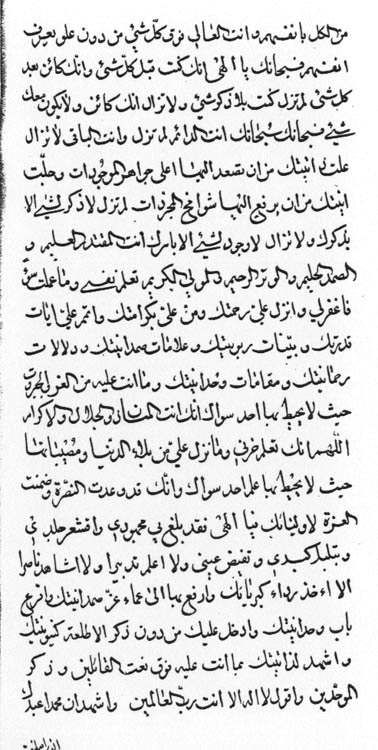 من الكل بانفسهم وانت المتعالي فوق كل شيء من دون علو يعرف
انفسهم فسبحانك يا الهي انك كنت قبل كل شيء وانك كائن بعد
كل شيء لم تزل كنت بلا ذكر شيء ولا تزال انك كائن ولا يكون معك
شيء فسبحانك سبحانك انت الدائم لم تزل وانت الباقي لا تزال
علت انيتك من ان تصعد اليها اعلى جواهر الموجودات وجلت
انيتك من ان يرفع اليها شوامخ المجردات لم تزل لا ذكر لشيء الا
بذكرك ولا تزال لا وجود لشيء الا بامرك انت المقتدر العليم و
الصمد الحليم والوتر الرحيم والمولى الكريم تعلم نفسي وما عملت من سوء
فاغفرلي وانزل علي رحمتك ومن علي بكرامتك واتمم علي ايات
قدرتك وبينات ربوبيتك وعلامات صمدانيتك ودلالات
رحمانيتك ومقامات وحدانيتك وما انت عليه من العز والجبروت
حيث لا يحيط بها احد سواك انك انت المنان ذو الجلال والاكرام
اللهم انك تعلم حزني وما نزل علي من بلاء الدنيا ومصيباتها
حيث لا يحيط بها علم احد سواك وانك قد وعدت النصرة وضمنت
العزة لاوليائك فيا الهي فقد بلغ بي مجهودي واقشعر جلدي
وتبلبل كبدي وتفيض عيني ولا اعلم تدبيرا ولا اشاهد ناصرا
الا اخذ رداء كبريائك وارفع بها الى عماء عز صمدانيتك واقرع
باب وحدانيتك وادخل عليك من دون ذكر الا طلعة كينونيتك
واشهد لذاتيتك بما انت عليه فوق نعت القائلين وذكر
الموحدين واقول لا اله الا انت رب العالمين واشهد ان محمدا عبدك